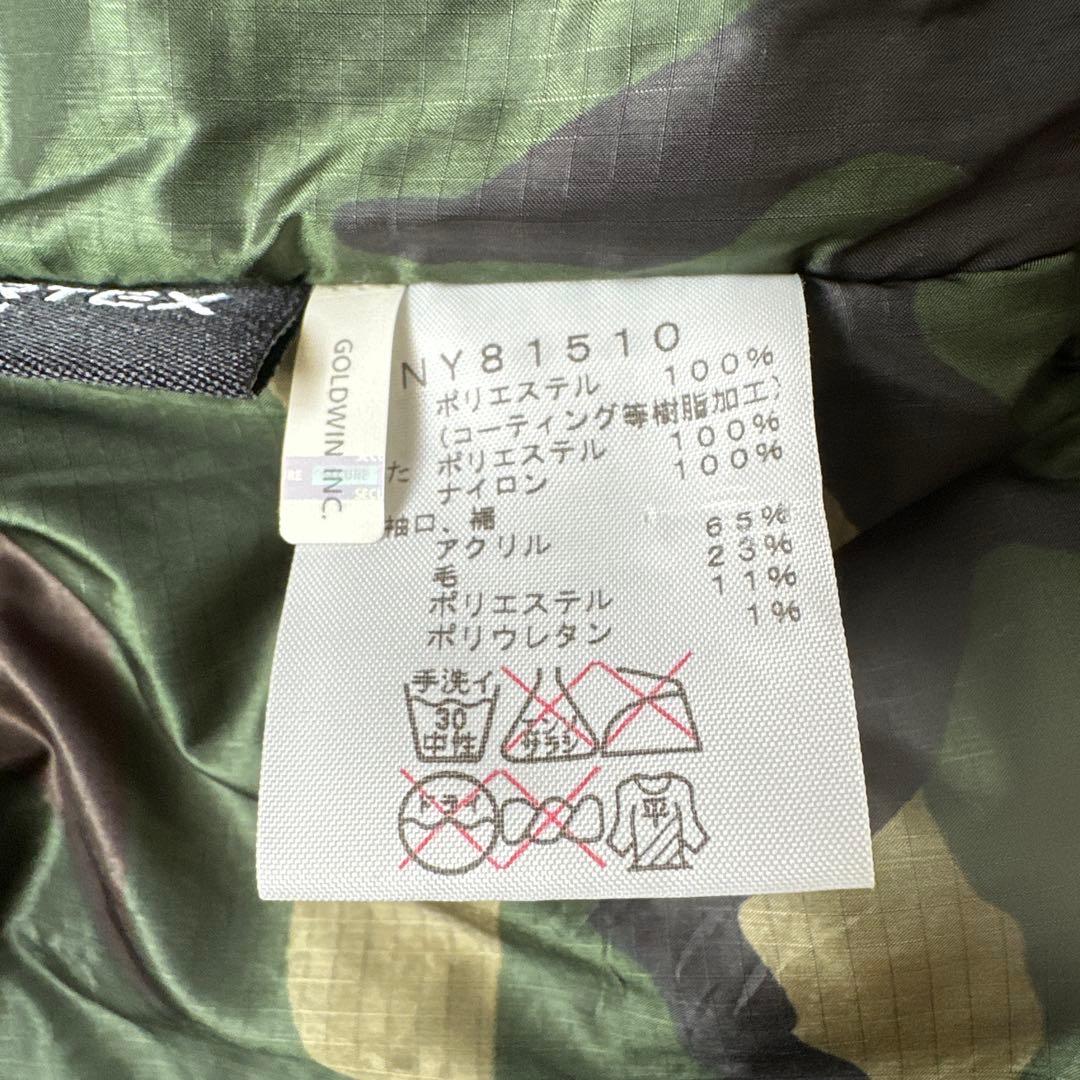 RTEX
GOLDWIN INC.
SECURE
NY81510
ポリエステル 100%
(コーティング等樹脂加工)
た ポリエステル 100%
ナイロン 100%
袖口、裾
アクリル 65%
毛 23%
ポリエステル 11%
ポリウレタン 1%
手洗イ
30
中性
エンソ
サラシ
ドライ
平